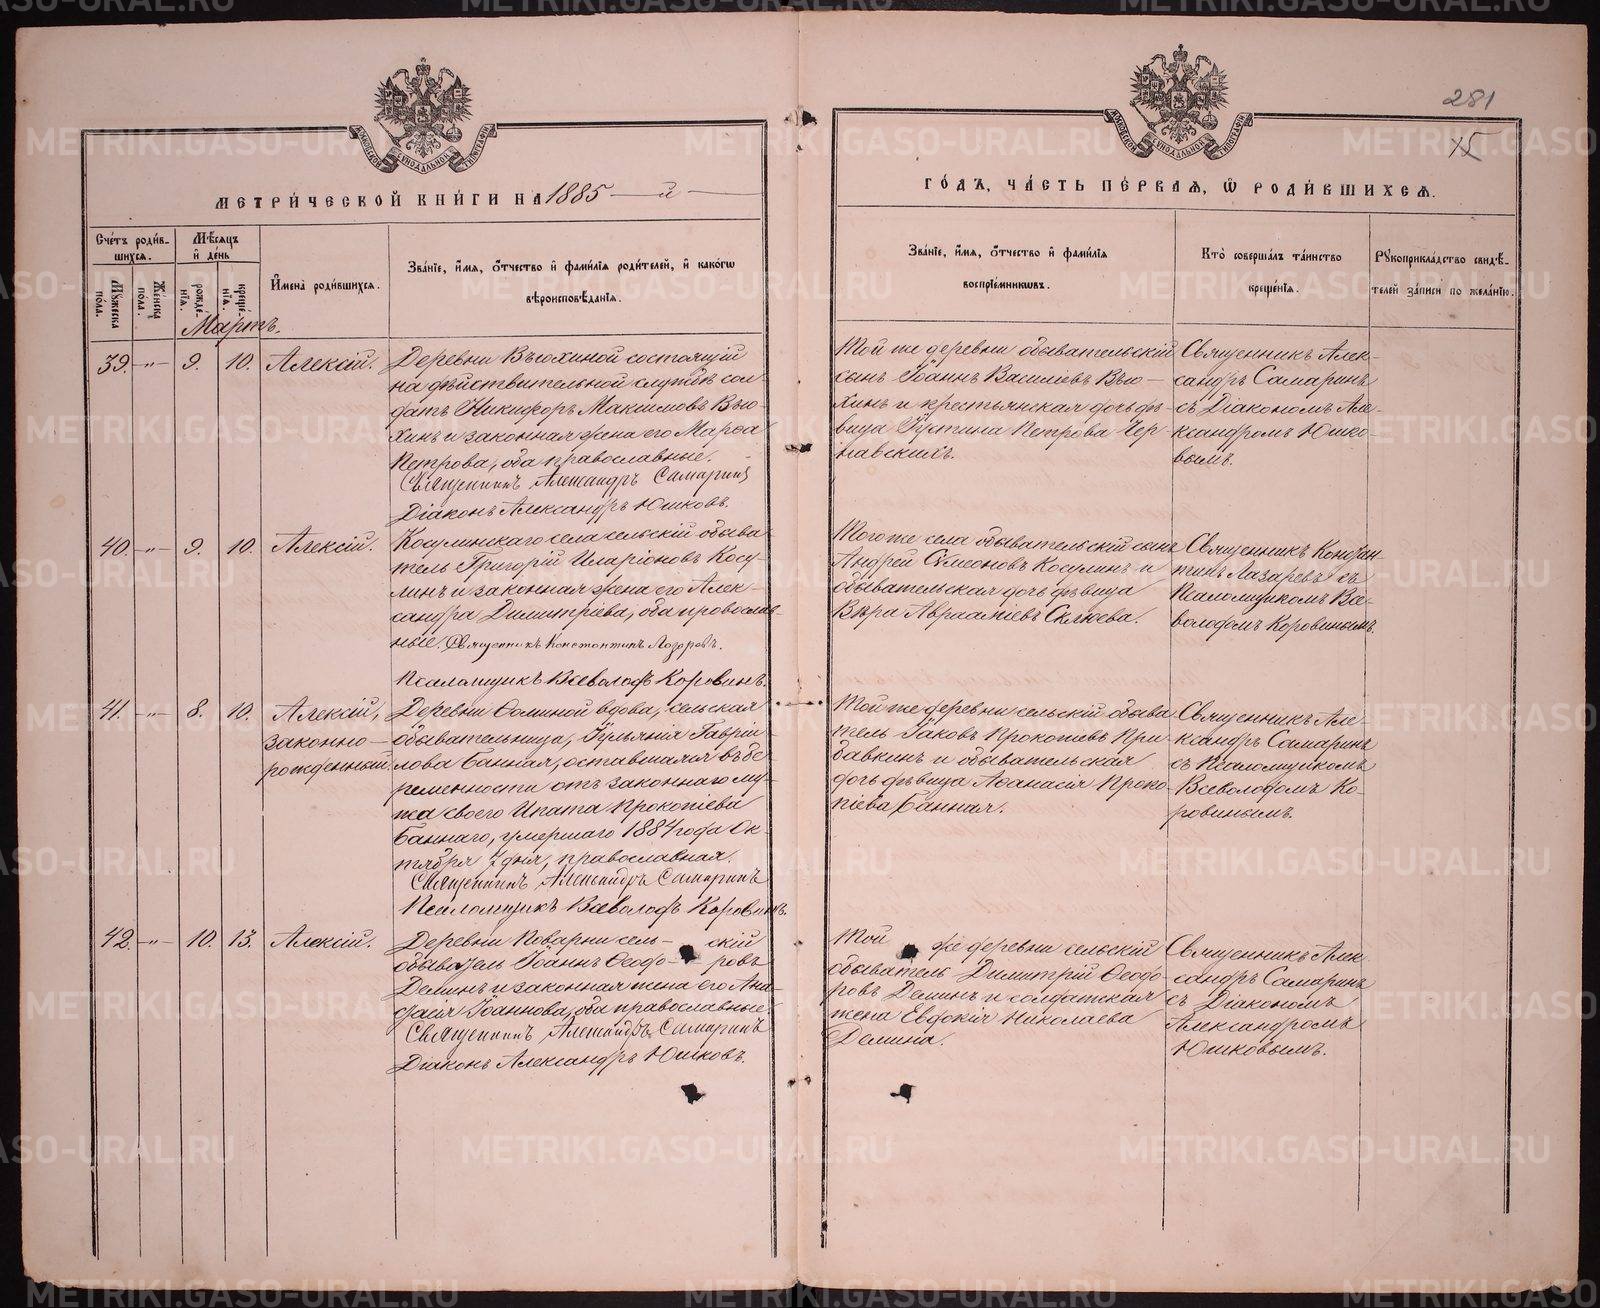 281
75
МЕТРИ́ЧЕСКОЙ КНИ́ГИ НА 1885 й
ГО́ДЪ, ЧА́СТЬ ПЕ́РВАЯ, Ѽ РОДИ́ВШИХСЯ.
Сче́тъ роди́в-
шихся.
Му́жеска по́ла.
Же́нска по́ла.
Мѣ́сяцъ
и҆ де́нь
рожде́нїя.
креще́нїя.
И҆мена̀ роди́вшихся.
Зва́нїе, и҆́мя, ѻ҆́тчество и҆ фами́лїя роди́телей, и҆ како́гѡ
вѣроисповѣ́данїя.
Зва́нїе, и҆́мя, ѻ҆́тчество и҆ фами́лїя
воспрїе́мникѡвъ.
Кто̀ соверша́лъ та́инство
креще́нїя.
Рꙋкоприкла́дство свидѣ́-
телей за́писи по жела́нїю.
Мартъ.
39. -"- 9. 10. Алексій.
Деревни Вьюхиной состоящій
на дѣйствительной службѣ сол-
датъ Никифоръ Максимовъ Вью-
хинъ и законная жена его Марѳа
Петрова, оба православные.
Священникъ Александръ Самаринъ
Діаконъ Александръ Юшковъ.
Той же деревни обывательскій
сынъ Іоаннъ Василіевъ Вью-
хинъ и крестьянская дочь дѣ-
вица Іустина Петрова Чер-
навскихъ.
Священникъ Алек-
сандръ Самаринъ
съ Діакономъ Але-
ксандромъ Юшко-
вымъ.
40. -"- 9. 10. Алексій.
Косулинскаго села сельскій обыва-
тель Григорій Иларіоновъ Косу-
линъ и законная жена его Алек-
сандра Димитріева, оба православ-
ные. Священникъ Константинъ Лазаревъ.
Псаломщикъ Всеволодъ Коровинъ.
Того же села обывательскій сынъ
Андрей Сѵмеоновъ Косулинъ и
обывательская дочь дѣвица
Вѣра Авраамiевъ Склюева.
Священникъ Констан-
тинъ Лазаревъ съ
Псаломщикомъ Все-
володомъ Коровинымъ.
41. -"- 8. 10. Алексій,
законно-
рожденный.
Деревни Ѳоминой вдова, сельская
обывательница, Іуліанія Гаврiи-
лова Банная, оставшаяся въ бе-
ременности отъ законнаго му-
жа своего Ипата Прокопіева
Баннаго, умершаго 1884 года Ок-
тября 7 дня, православная.
Священникъ Александръ Самаринъ
Псаломщикъ Всеволодъ Коровинъ.
Той же деревни сельскій обыва-
тель Іаковъ Прокопіевъ При-
бавкинъ и обывательская
дочь дѣвица Аѳанасія Проко-
піева Банная.
Священникъ Але-
ксандръ Самаринъ
съ Псаломщикомъ
Всеволодомъ Ко-
ровинымъ.
42. -"- 10. 13. Алексій.
Деревни Поварни сель- скій
обыватель Іоаннъ Ѳеодо- ровъ
Деминъ и законная жена его Ана-
фасія Іоаннова, оба православные.
Священникъ Александръ Самаринъ
Діаконъ Александръ Юшковъ.
Той же деревни сельскій
обыватель Димитрій Ѳеодо-
ровъ Деминъ и солдатская
жена Евдокія Николаева
Демина.
Священникъ Алек-
сандръ Самаринъ
съ Діакономъ
Александромъ
Юшковымъ.